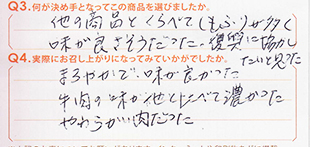 Q3.何が決め手となってこの商品を選びましたか。
他の商品とくらべて(もふり)が多く
味が良さそうだった。復興に協力
たいと思った
Q4.実際にお召し上がりになってみていかがでしたか。
まろやかで、味が良かった
牛肉の味が他とくらべて濃かった
やわらかい肉だった